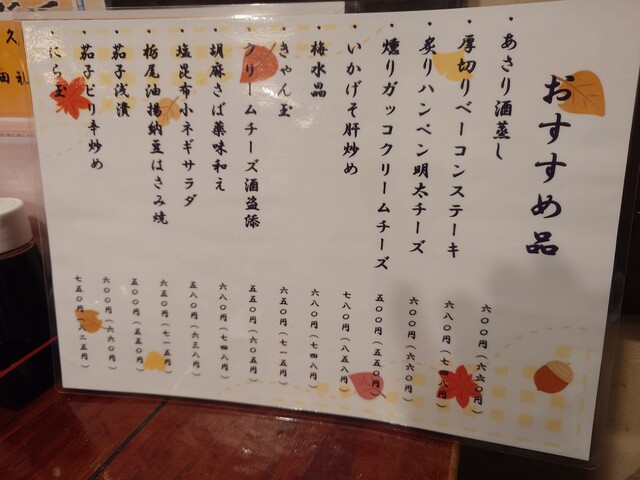 おすすめ品
・あさり酒蒸し 六〇〇円(六六〇円)
・厚切りベーコンステーキ 六八〇円(七四八円)
・炙りハンペン明太チーズ 六〇〇円(六六〇円)
・燻りガッコクリームチーズ 五〇〇円(五五〇円)
・いかげそ肝炒め 七八〇円(八五八円)
・梅水晶 六八〇円(七四八円)
・きゃん玉 六五〇円(七一五円)
・クリームチーズ酒盗添 五五〇円(六〇五円)
・胡麻さば薬味和え 六八〇円(七四八円)
・塩昆布小ネギサラダ 五八〇円(六三八円)
・栃尾油揚納豆はさみ焼 六五〇円(七一五円)
・茄子浅漬 五〇〇円(五五〇円)
・茄子ピリ辛炒め 六〇〇円(六六〇円)
・にら玉 七五〇円(八二五円)
久
田